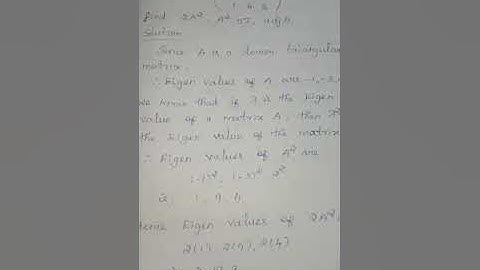 1 4 2
find 2A², A² 5I, adj A.
Solution
Since A is a lower triangular
matrix.
∴ Eigen values of A are -1, -3,
we know that if λ is the Eigen
value of a matrix A, then λ²
the Eigen value of the matrix
∴ Eigen values of A² are
(-1)², (-3)², 2²
ie, 1, 9, 4
Hence Eigen values of 2A²
2(1), 2(9), 2(4)